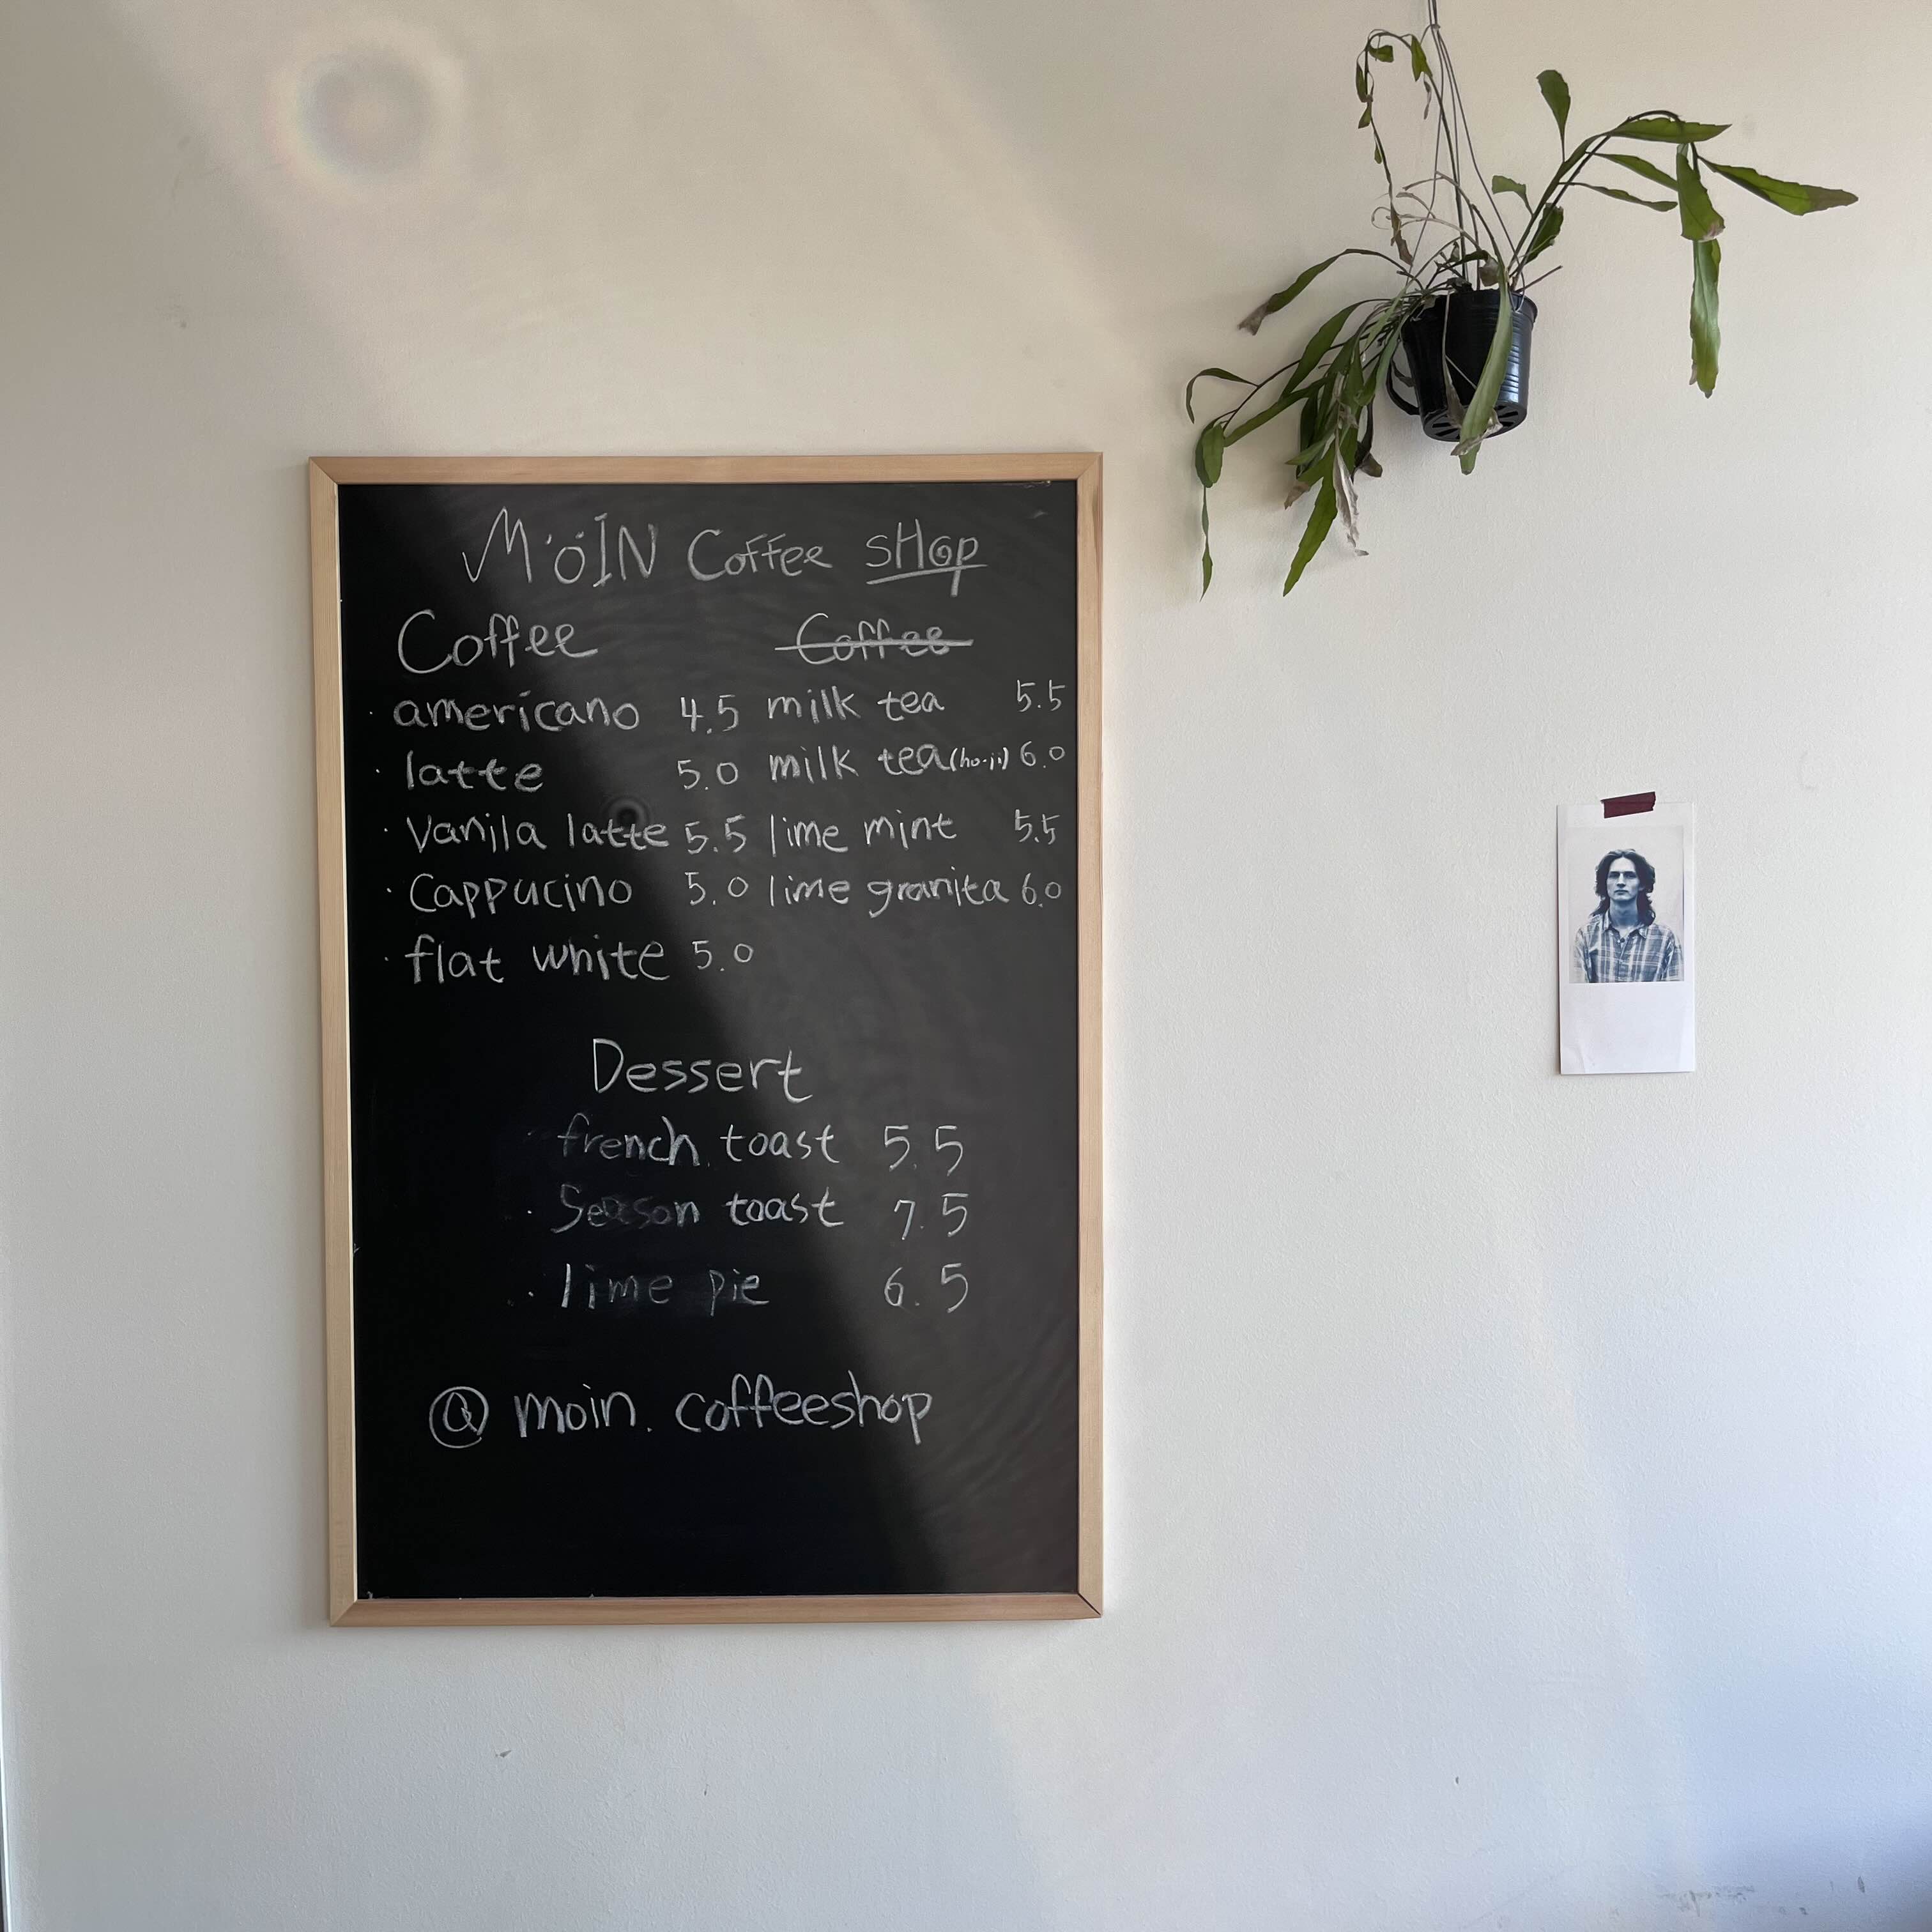 MöIN Coffee SHOP
Coffee Coffee
· americano 4.5 milk tea 5.5
· latte 5.0 milk tea (ho-ji) 6.0
· Vanila latte 5.5 lime mint 5.5
· Cappucino 5.0 lime granita 6.0
· flat white 5.0
Dessert
· french toast 5.5
· Season toast 7.5
· lime pie 6.5
@ moin.coffeeshop